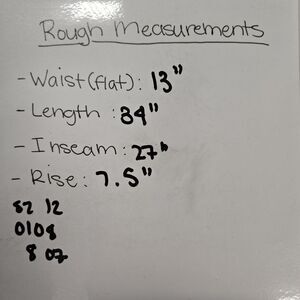 Rough Measurements
- Waist(flat): 13"
- Length: 34"
- Inseam: 27"
- Rise: 7.5"
82 12
0108
8 07